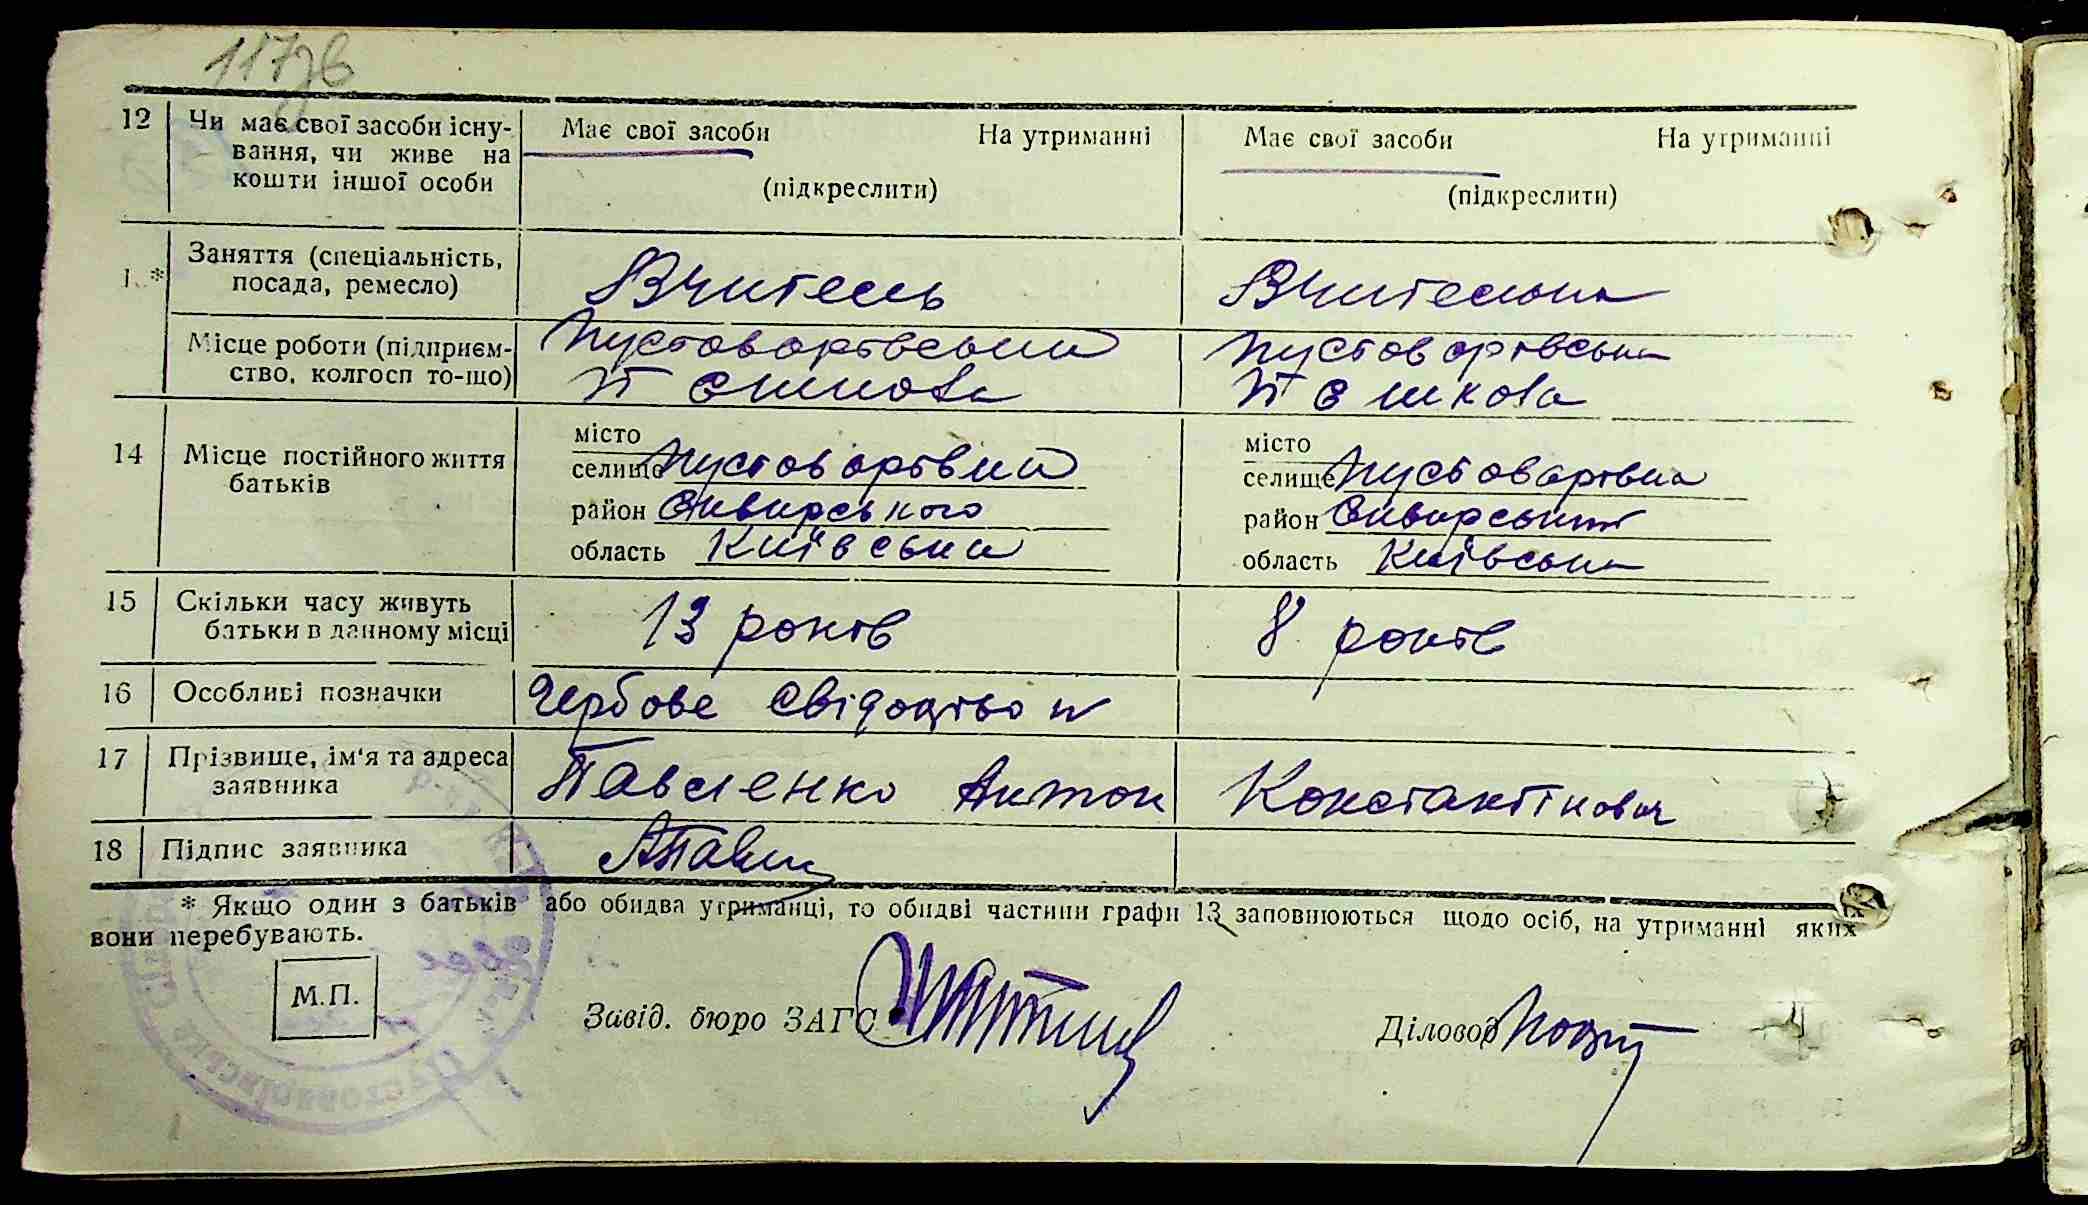 117зв
12 Чи має свої засоби існу- Має свої засоби На утриманні Має свої засоби На утриманні
вання, чи живе на
кошти іншої особи (підкреслити) (підкреслити)
Заняття (спеціальність,
посада, ремесло) Вчитель Вчителька
Місце роботи (підприєм- Пустоварівська Пустоварівська
ство, колгосп то-що) школа школа
14 Місце постійного життя
батьків
місто місто
селище Пустоварівка селище Пустоварівка
район Сквирського район Сквирський
область Київська область Київська
15 Скільки часу живуть
батьки в данному місці 13 років 8 років
16 Особливі позначки Гербове свідоцтво
17 Прізвище, ім'я та адреса
заявника Павленко Антон Константінович
18 Підпис заявника АПавл
* Якщо один з батьків або обидва утриманці, то обидві частини графи 13 заповнюються щодо осіб, на утриманні яких
вони перебувають.
М.П.
Завід. бюро ЗАГС Діловод